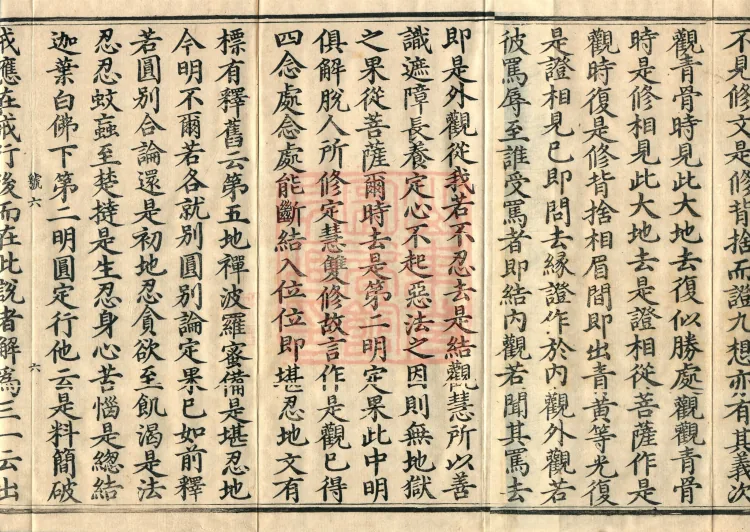 不見修文是修背捨而證九想亦有其義次
觀青骨時見此大地去復似勝處觀觀青骨
時是修相見此大地去是證相從菩薩作是
觀時復是修背捨相眉間即出青黃等光復
是證相見已即問去緣證作於內觀外觀若
彼罵辱至誰受罵者即結內觀若聞其罵去
即是外觀從我若不忍去是結觀慧所以善
識遮障長養定心不起惡法之因則無地獄
之果從菩薩爾時去是第二明定果此中明
俱解脫人所修定慧雙修故言作是觀已得
四念處念處能斷結入位位即堪忍地文有
標有釋舊云第五地禪波羅蜜備是堪忍地
今明不爾若各就別圓別論定果已如前釋
若圓別合論還是初地忍貪欲至飢渴是法
忍忍蚊蝱至楚撻是生忍身心苦惱是總結
迦葉白佛下第二明圓定行他云是料簡破
號六 六
戒應在戒行後而在此說者解為三一云出